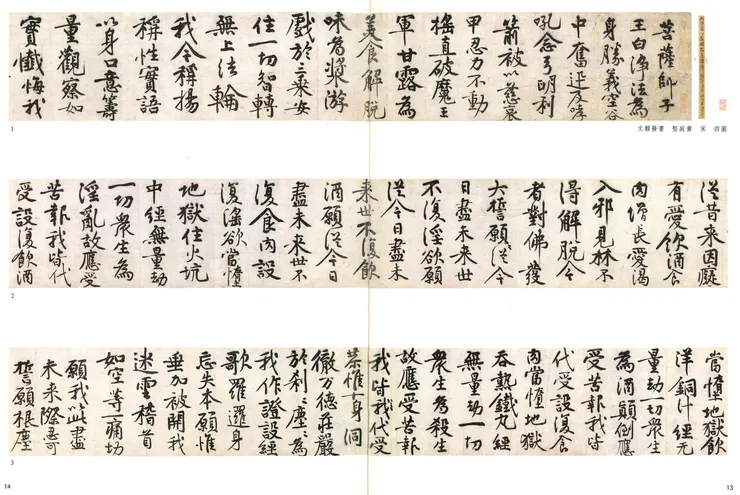 菩薩師子
王白淨法為
身勝義空谷
中奮迅及哮
吼念弓明利
箭被以慈哀
甲忍力不動
搖直破魔王
軍甘露為
美食解脫
味為漿游
戲於三乘安
住一切智轉
無上法輪
我今稱揚
稱性實語
以身口意籌
量觀察如
實懺悔我
1
圖四 宋 黃庭堅 書發願文
從昔來因癡
有愛飲酒食
肉增長愛渴
入邪見林不
得解脫今
者對佛發
大誓願從今
日盡未來世
不復淫欲願
從今日盡未
來世不復飲
酒願從今日
盡未來世不
復食肉設
復淫欲當墮
地獄住火坑
中經無量劫
一切眾生為
淫亂故應受
苦報我皆代
受設復飲酒
2
當墮地獄飲
洋銅汁經无
量劫一切眾生
為酒顛倒應
受苦報我皆
代受設復食
肉當墮地獄
吞熱鐵丸經
無量劫一切
眾生為殺生
故應受苦報
我皆我代受
恭惟十身洞
徹万德莊嚴
於剎〻塵為
我作證設經
歌羅邏身
忘失本願惟
垂加被開我
迷雲稽首
如空等一痛切
願我以此盡
未來際忍可
誓願根塵
3
13
14